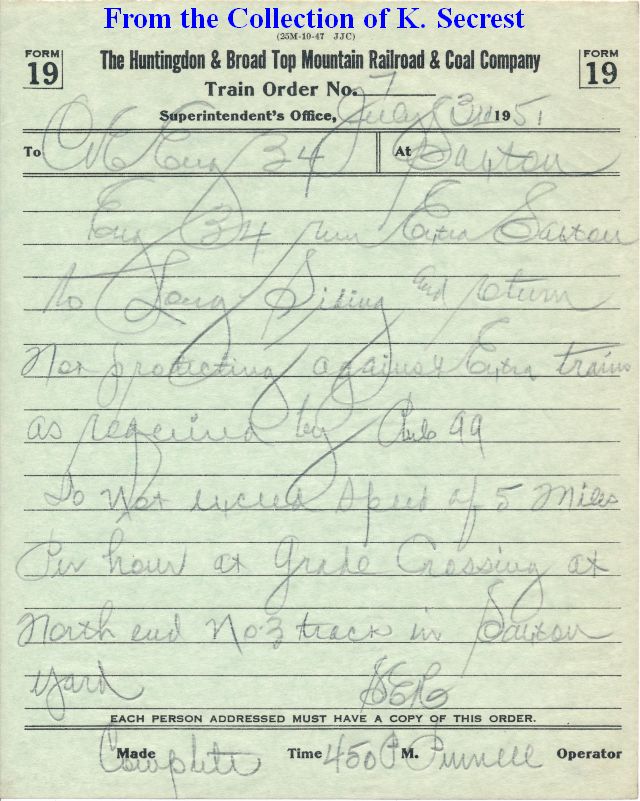 From the Collection of K. Secrest
(25M-10-47 JJC)
FORM 19
The Huntingdon & Broad Top Mountain Railroad & Coal Company
FORM 19
Train Order No. 7
Superintendent's Office, July 3rd 1951
To C&E Eng 34 At Saxton
Eng 34 run Extra Saxton
to Long Siding and return
Not protecting against Extra trains
as required by Rule 99
Do Not exceed speed of 5 Miles
Per hour at Grade Crossing at
North end No 3 track in Saxton
yard
EACH PERSON ADDRESSED MUST HAVE A COPY OF THIS ORDER.
Made Complete Time 450 P M. Operator